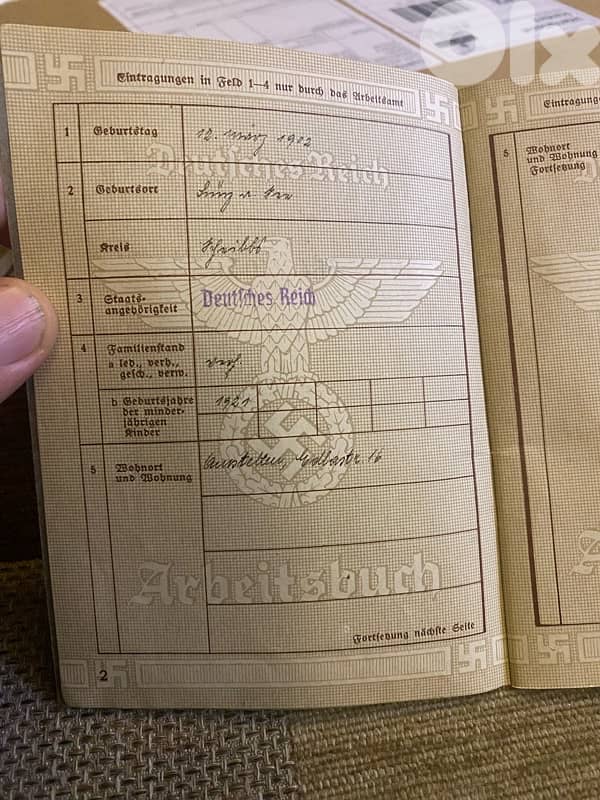 olx
Eintragungen in Feld 1—4 nur durch das Arbeitsamt
1 Geburtstag 12. März 1902
Deutsches Reich
2 Geburtsort
Kreis Scheibbs
3 Staats-
angehörigkeit Deutsches Reich
4 Familienstand
a led., verh.,
gesch., verw. verh.
b Geburtsjahre
der minder-
jährigen
Kinder 1921
5 Wohnort
und Wohnung Amstetten, 16
Arbeitsbuch
Fortsetzung nächste Seite
2
Eintragung
5 Wohnort
und Wohnung
Fortsetzung